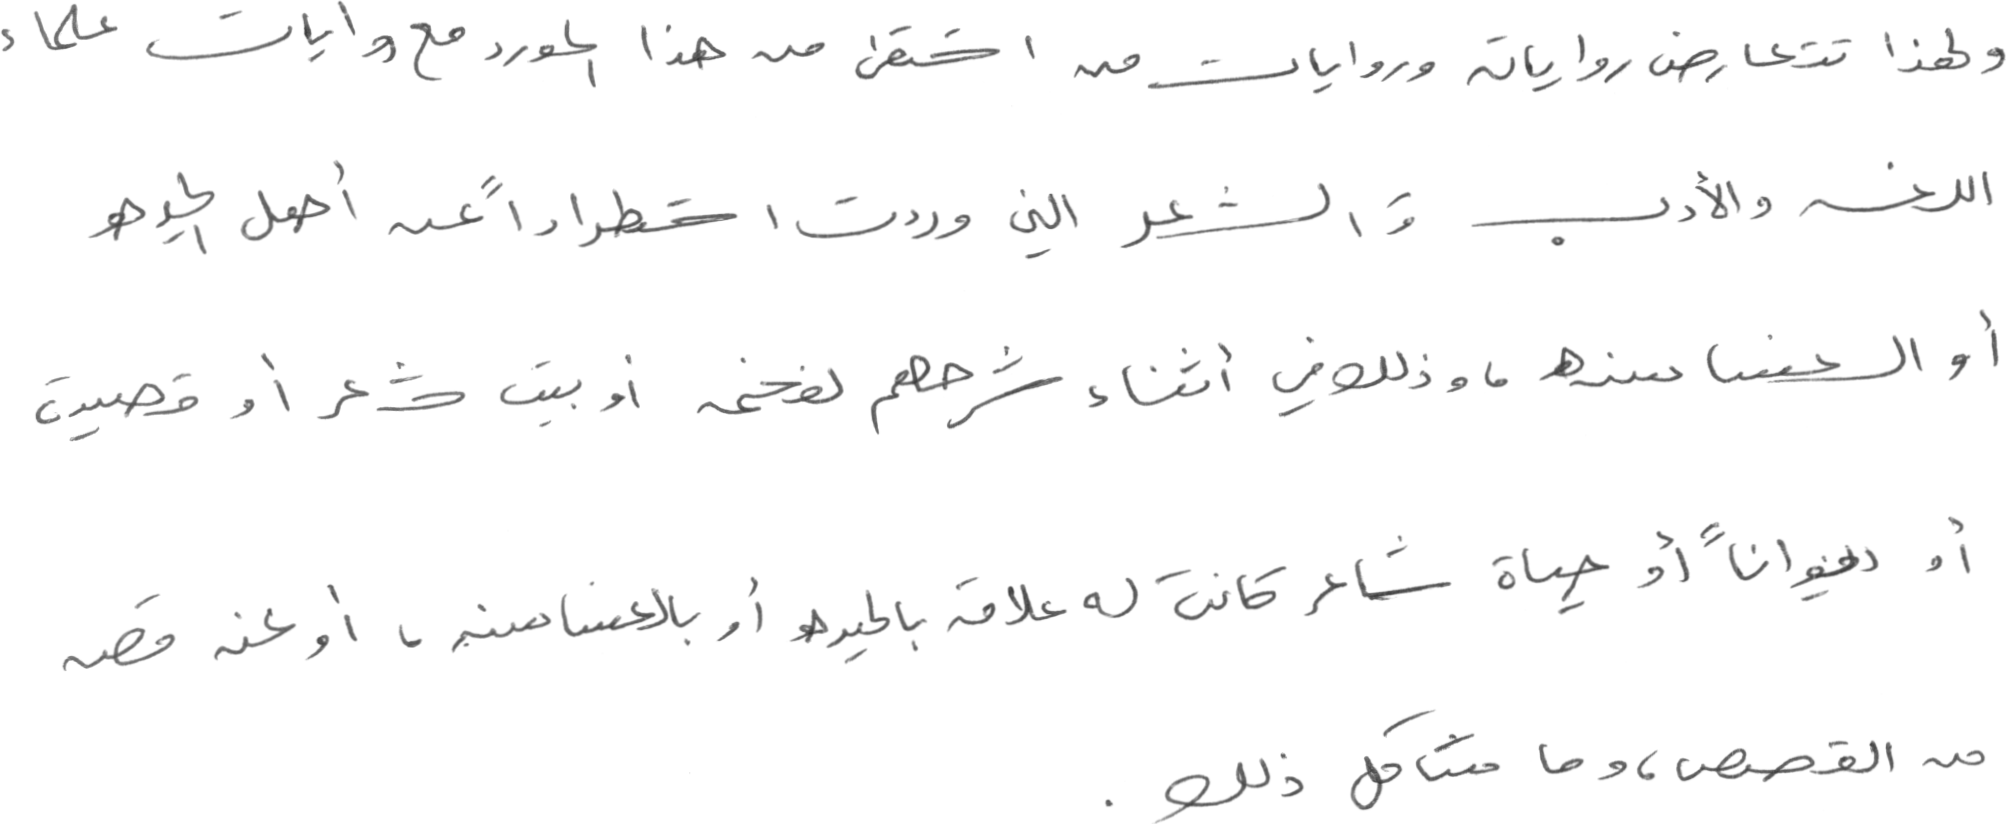 ولهذا تتعارض رواياته وروايات من استقى من هذا المورد مع روايات علماء
اللغة والأدب و الشعر التي وردت استطراداً عن أهل الحيرة
أو الغساسنة، وذلك في أثناء شرحهم لفخمة أو بيت شعر أو قصيدة
أو ديواناً أو حياة شاعر كانت له علاقة بالحيرة أو بالغساسنة، أو عنه قصة
من القصص، وما شاكل ذلك.